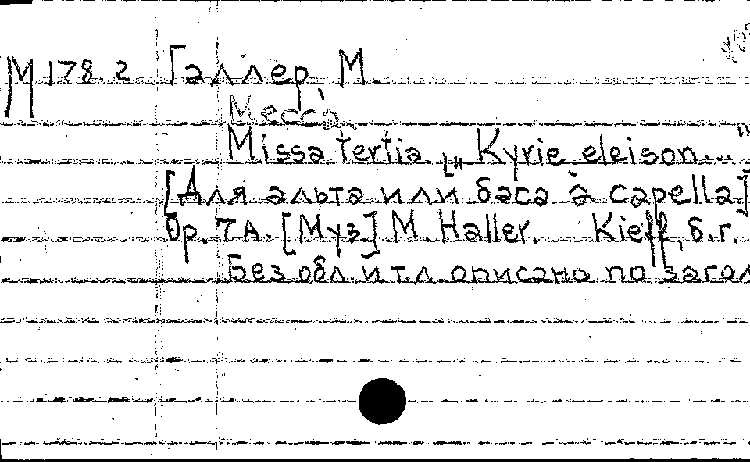 М 178.2 Галлер, М.
Месса
Missa tertia „Kyrie eleison..."
[Для альта или баса a capella]
Op. 7A. [Муз] М. Haller. Kieff, б.г.
Без обл. и т.л. описано по загол